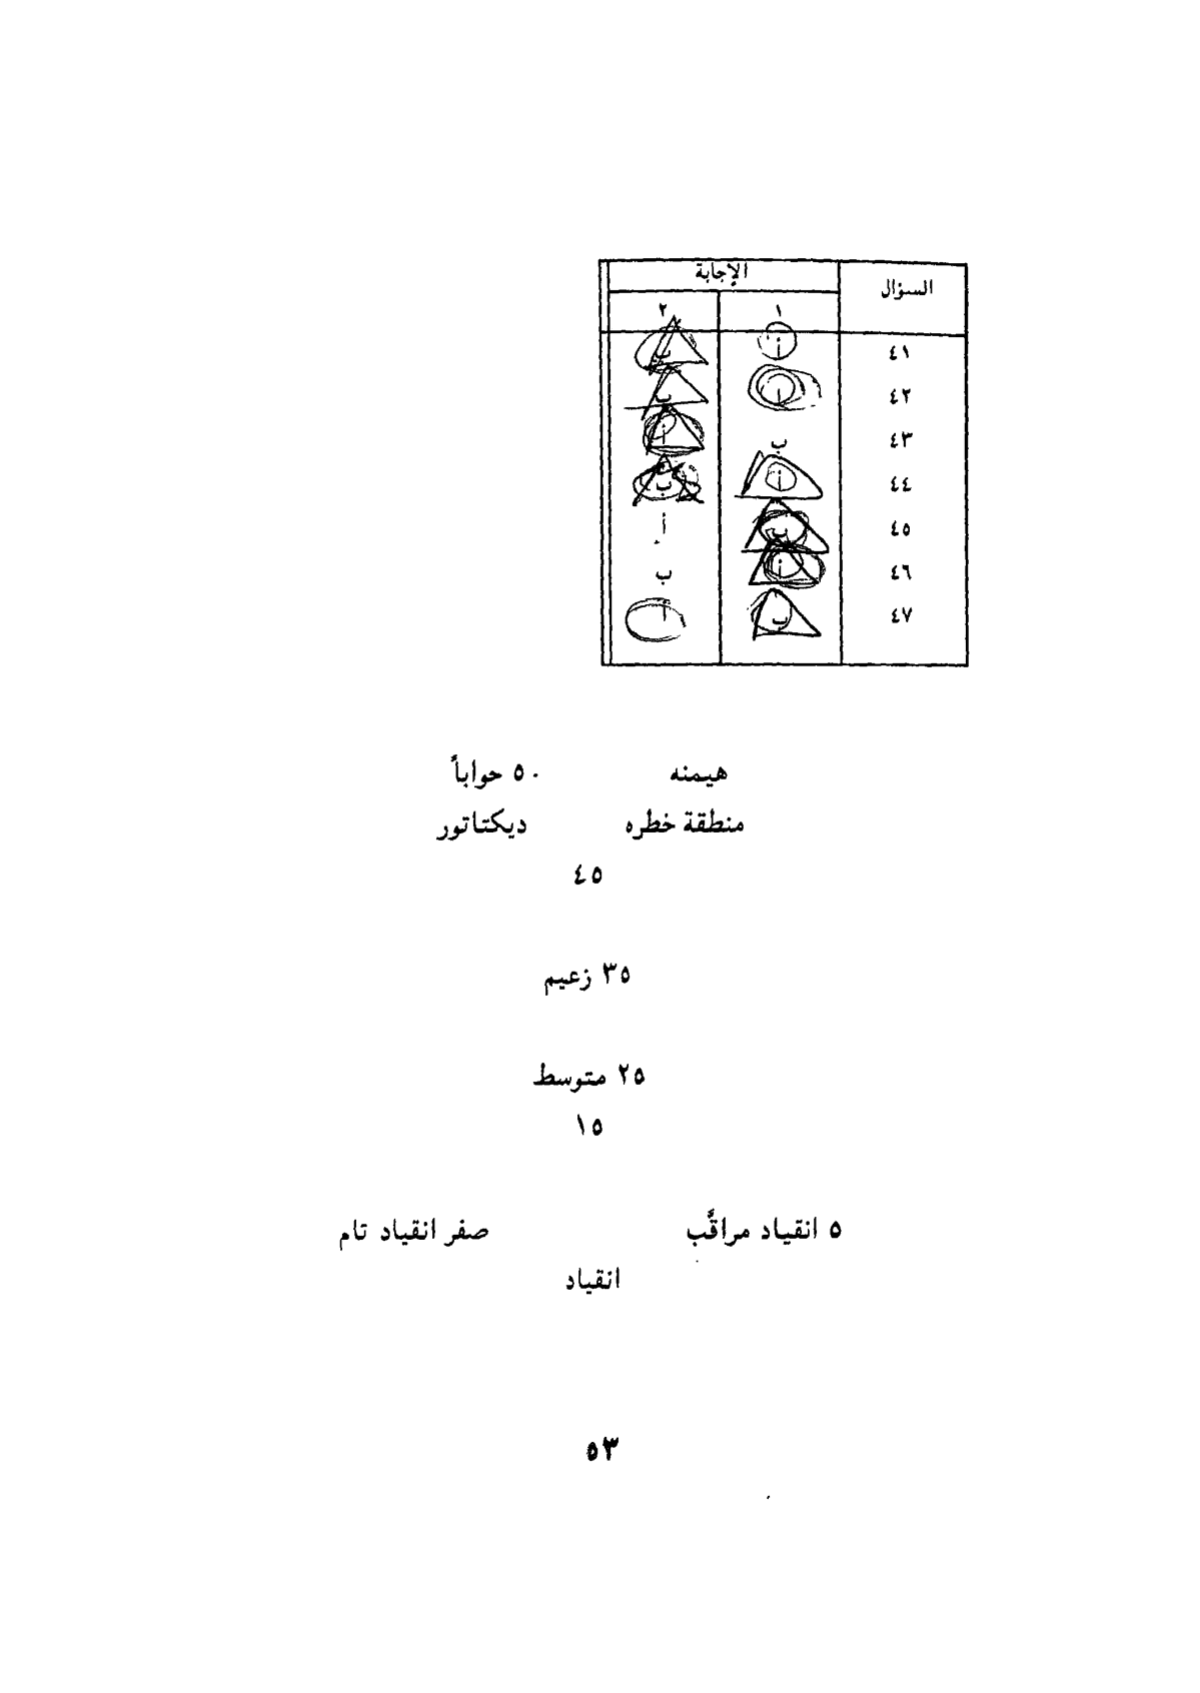 السؤال الإجابة
١ ٢
٤١ أ ب
٤٢ أ ب
٤٣ ب أ
٤٤ أ ب
٤٥ ب أ
٤٦ أ ب
٤٧ ب أ
هيمنه ٥٠ حواباً
منطقة خطره ديكتاتور
٤٥
٣٥ زعيم
٢٥ متوسط
١٥
٥ انقياد مراقَّب صفر انقياد تام
انقياد
٥٣